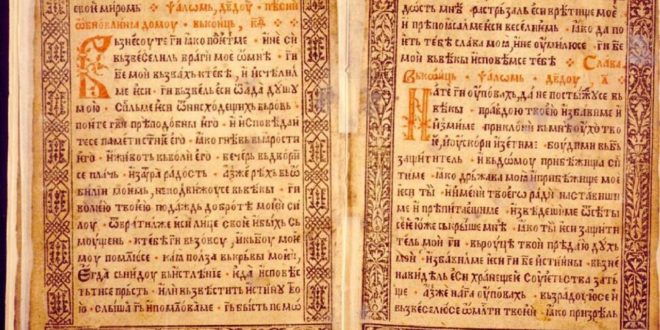 свои миромь · ѱаломь, дѣдоу · пѣснїи
ѡбновлѥнїа домоу · выконць, к҃ѳ
Възнесоу те г҃и іако поѥт ме · и не си
възвеселиль враги моѥ ѡ мнѣ · г҃и
б҃е мои възвахь к тебѣ, и исцѣлиль
ме ѥси · г҃и възвель ѥси ѿ ада душу
мою · ме ѥси ѿ низсходещих вь ровь
поите г҃ви прѣподобны ѥго · и исповѣдаи
те се памети ст҃ние ѥго · іако гнѣвь вь іарости
ѥго · и животь вь воли ѥго · вечерь вьдвори
се плачь · и заутра радость · азже рѣхь вь ѡ
билїи моѥмь, не подвижоу се вь вѣкы · г҃и
волѥю твоѥю подаждь добротѣ моѥи си
лоу · ѿвратил же ѥси лице своѥ и быхь сь
моущень · к тебѣ г҃и вьзовоу, и к б҃оу моѥ
моу помолю се · каа полза вь крьви моѥи ·
ѥгда сьнидоу вь истлѣнїе · ѥда исповѣс
ть ти се прьсть · или вьзвѣстить истиноу
ю · слыша г҃ь и помлова ме · г҃ь бысть
дость мнѣ · растрьзаль ѥси врѣтище моѥ
и прѣпоꙗса ме ѥси веселиѥмь · іако да по
ить тебѣ слава моа, и не оумилю се · г҃и б҃е
мои вь вѣкы исповѣм се тебѣ · Слава
выконць ѱаломь дѣдоу · л
На те г҃и оуповахь, да не постыжоу се вь
вѣкы · правдою твоѥю избави ме и
изми ме · приклони кь мнѣ оухо твоѥ
и оускори изети ме · боуди ми вь б҃ь
защитител и вь домь прибѣжища сп҃
ти ме · іако дрьжава моа и прибѣжище мо
ѥ ѥси ты · и имени твоѥго ради наставиши
ме и прѣпитаѥши ме · изведеши ме ѿ сѣты
сеи юже ськрыше мнѣ · іако ты ѥси защити
тель мои г҃и · вь роуцѣ твои прѣдаю д҃хь
мои · избавил ме ѥси г҃и б҃е истинны · вьзне
навидѣль ѥси хранещеѥ соуѥтьства зать
ще · аз же на г҃а оуповахь · вьзрадоую се и
вьзвеселю се ѡ м҃лти твоѥи · іако призрѣль